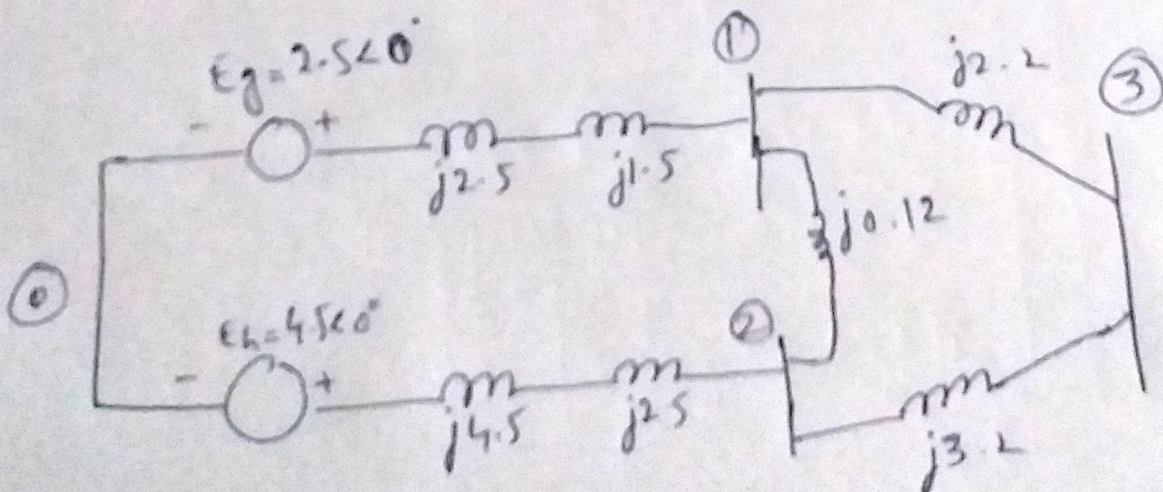 Eg = 2.5<0°
①
j2.2
③
-
+
j2.5
j1.5
j0.12
⓪
Eh = 4.5<0°
②
-
+
j4.5
j2.5
j3.2